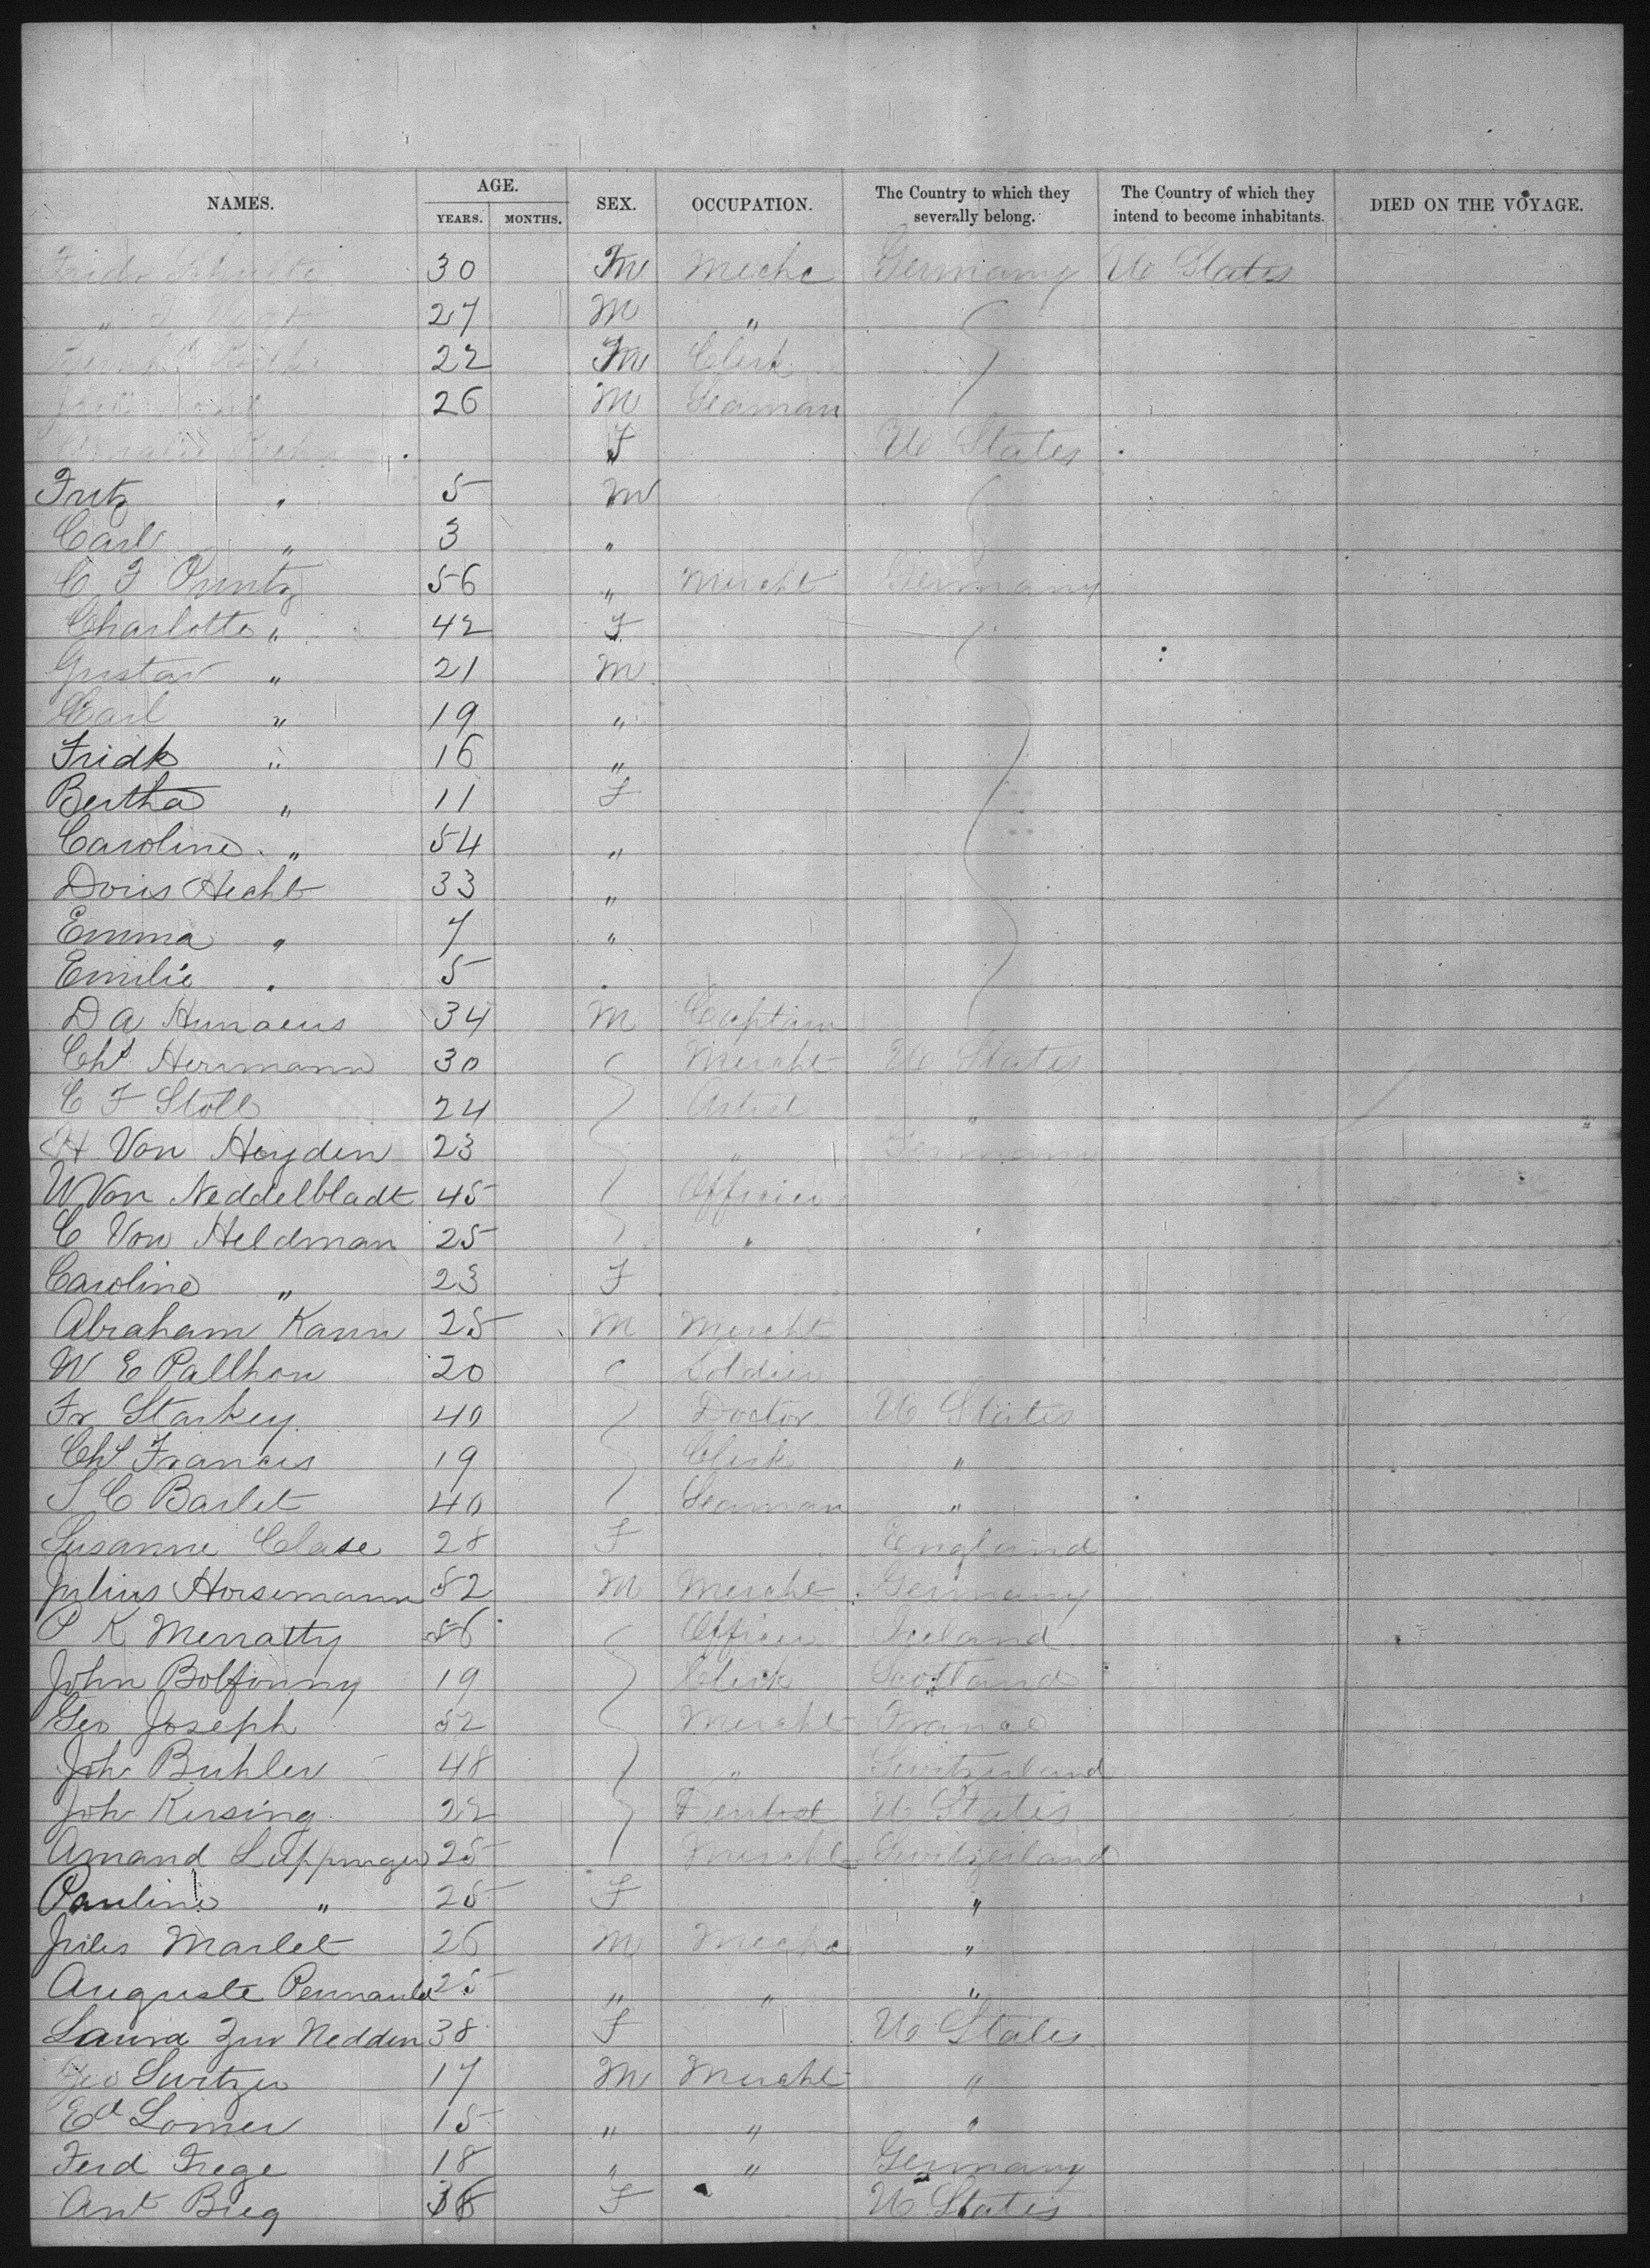 NAMES. AGE. YEARS. MONTHS. SEX. OCCUPATION. The Country to which they severally belong. The Country of which they intend to become inhabitants. DIED ON THE VOYAGE.
30 M Mechc Germany U States
27 M "
22 M Clerk
26 M Seaman
F U States
Fritz " 5 M
Carl " 3 "
C F Puntz 56 " Mercht Germany
Charlotte " 42 F
Gustav " 21 M
Carl " 19 "
Fridk " 16 "
Bertha " 11 F
Caroline " 54 "
Doris Hecht 33 "
Emma " 7 "
Emilie " 5 "
D A Hunaeus 34 M Captain
Chs Herrmann 30 Mercht U States
C F Stoll 24 Artist "
H Von Heyden 23 " Germany
W Von Neddelbladt 45 Officier
C Von Heldman 25 " "
Caroline " 23 F
Abraham Kann 25 M Mercht
W E Pallhon 20 Soldier
Fr Starkey 40 Doctor U States
Chs Francis 19 Clerk "
S C Barlet 40 Seaman "
Susanne Clase 28 F England
Julius Horsemann 52 M Mercht Germany
P K Merratty 56 Officer Ireland
John Bolfonny 19 Clerk Scotland
Geo Joseph 52 Mercht France
Joh Buhler 48 " Switzerland
Joh Kersing 22 Dentist U States
Amand 25 Mercht Switzerland
Pauline " 25 F "
Jules Marlet 26 M Mechc "
Auguste 25 " " "
Laura Zur Nedden 38 F U States
Geo Switzer 17 M Mercht "
Ed Lomer 15 " " "
Ferd Frege 18 " " Germany
Ant Bieg F U States